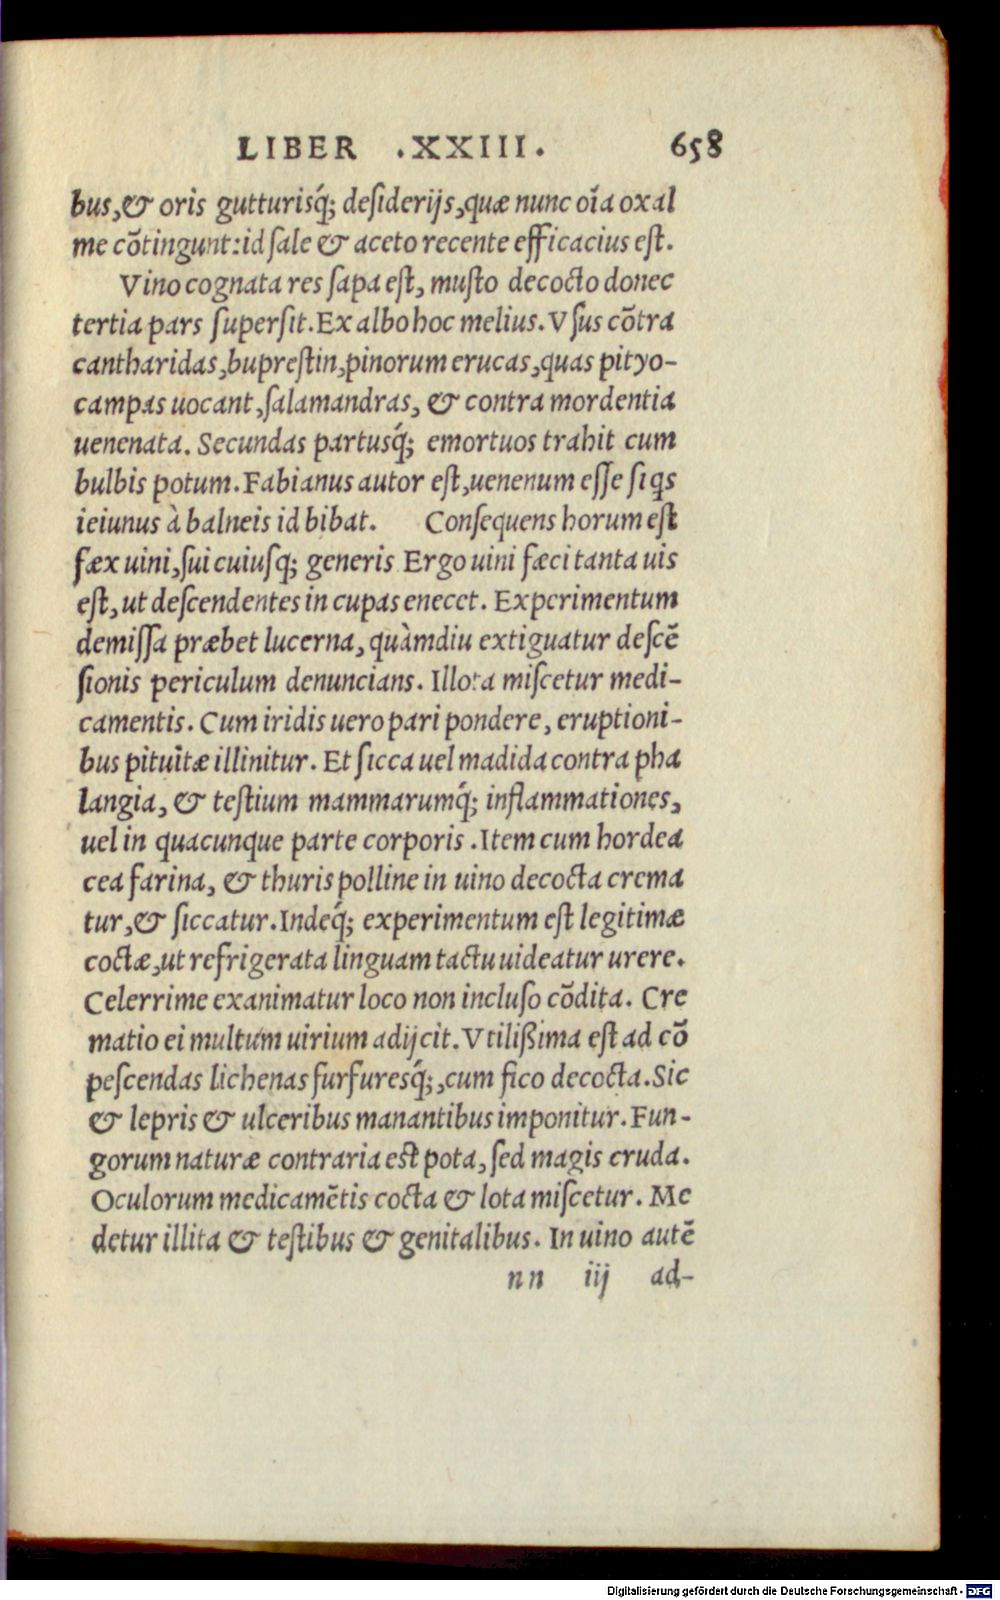 LIBER .XXIII. 658
bus,& oris gutturisq́; desiderijs,quæ nunc oīa oxal
me cõtingunt:id sale & aceto recente efficacius est.
Vino cognata res sapa est, musto decocto donec
tertia pars supersit. Ex albo hoc melius. Vsus cõtra
cantharidas,buprestin,pinorum erucas,quas pityo-
campas uocant,salamandras, & contra mordentia
uenenata. Secundas partusq́; emortuos trahit cum
bulbis potum. Fabianus autor est,uenenum esse si qs
ieiunus à balneis id bibat. Consequens horum est
fæx uini,sui cuiusq; generis Ergo uini fæci tanta uis
est, ut descendentes in cupas enecet. Experimentum
demissa præbet lucerna, quàmdiu extiguatur descẽ
sionis periculum denuncians. Illota miscetur medi-
camentis. Cum iridis uero pari pondere, eruptioni-
bus pituitæ illinitur. Et sicca uel madida contra pha
langia, & testium mammarumq́; inflammationes,
uel in quacunque parte corporis. Item cum hordea
cea farina, & thuris polline in uino decocta crema
tur,& siccatur. Indeq́; experimentum est legitimæ
coctæ,ut refrigerata linguam tactu uideatur urere.
Celerrime exanimatur loco non incluso cõdita. Cre
matio ei multum uirium adijcit. Vtilißima est ad cõ
pescendas lichenas furfuresq́;,cum fico decocta. Sic
& lepris & ulceribus manantibus imponitur. Fun-
gorum naturæ contraria est pota, sed magis cruda.
Oculorum medicamẽtis cocta & lota miscetur. Me
detur illita & testibus & genitalibus. In uino autẽ
nn iij ad-
Digitalisierung gefördert durch die Deutsche Forschungsgemeinschaft - DFG